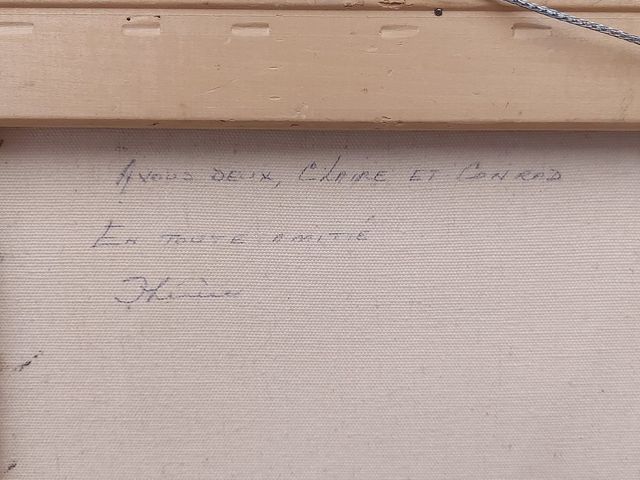 A VOUS DEUX, CLAIRE ET CONRAD
EN TOUTE AMITIÉ
Thérèse